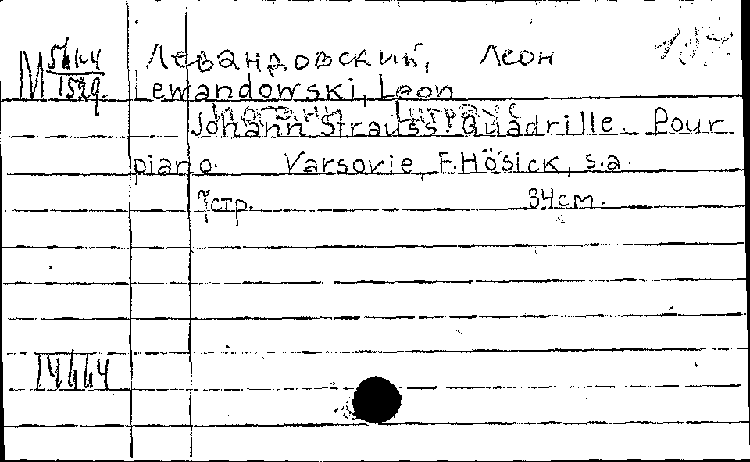 М 5644/1529. Левандовский, Леон
Lewandowski, Leon
Johann Strauss! Quadrille. Pour
piano. Varsovie, F. Hösick, s.a.
7стр. 34см.
14664